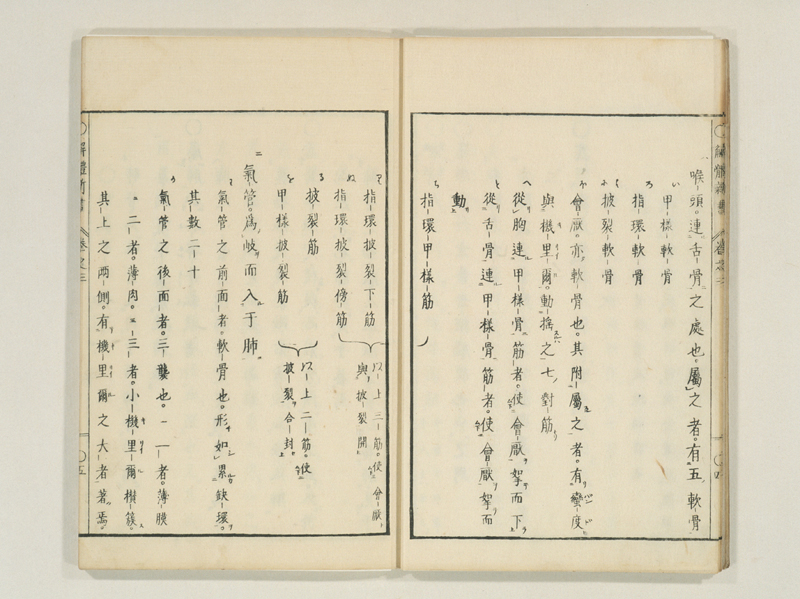 喉頭。連舌骨之處也。屬之者。有五軟骨
い 甲樣軟骨
ろ 指環軟骨
披裂軟骨
會厭。亦軟骨也。其附屬之者。有蠻度
與機里爾。動搖之七對筋
へ 從胸連甲樣骨筋者。使會厭拏而下
と 從舌骨連甲樣骨筋者。使會厭拏而
動
ち 指環甲樣筋
指環披裂下筋
ぬ 指環披裂傍筋
以上三筋。使會厭
與披裂開
る 披裂筋
を 甲樣披裂筋
以上二筋。使
披裂合封
氣管。爲岐而入于肺
氣管之前面者。軟骨也。形如累缺環。
其數二十
氣管之後面者。三襲也。一一者。薄膜
二者。薄肉。三者。小機里爾櫕簇。
其上之兩側。有機里爾之大者著焉。
解體新書
卷之三
〇五